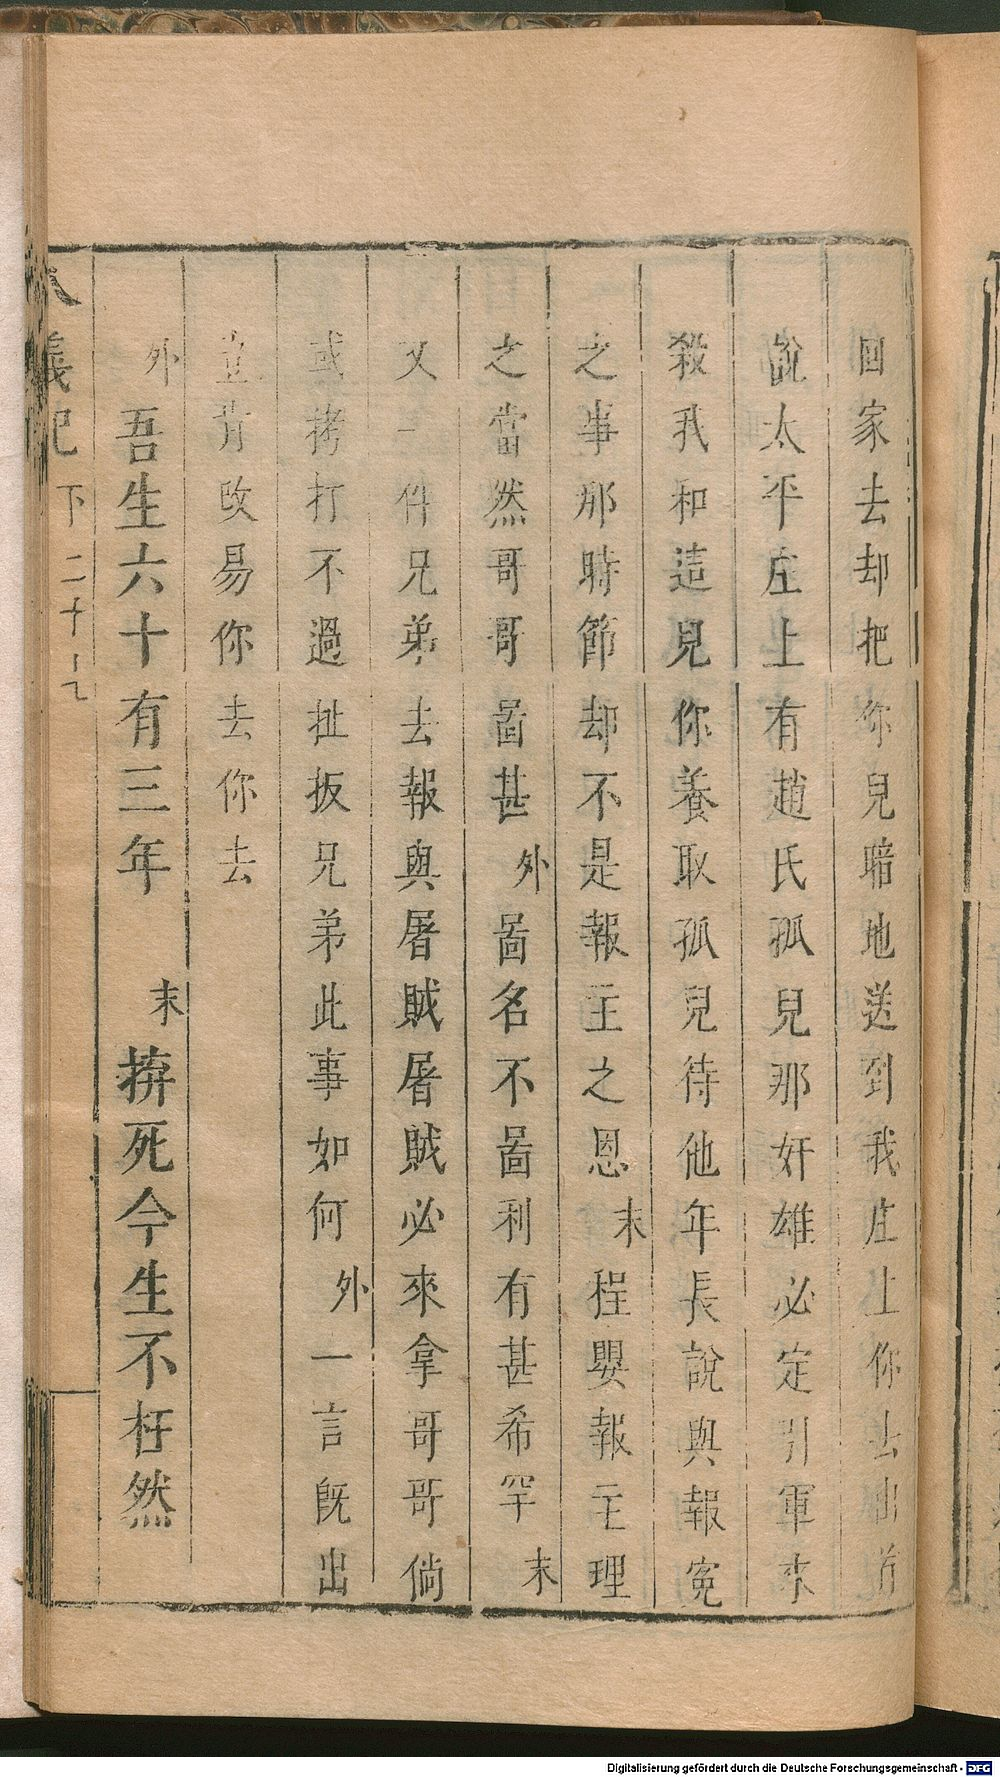 回家去却把你兒暗地送到我庄上你去出首
說太平庄上有趙氏孤兒那奸雄必定引軍來
殺我和這兒你養取孤兒待他年長說與報寃
之事那時節却不是報主之恩末程嬰報主理
之當然哥哥啚甚外啚名不啚利有甚希罕末
又一件兄弟去報與屠賊屠賊必來拿哥哥倘
或拷打不過扯扳兄弟此事如何外一言旣出
豈肯改易你去你去
外吾生六十有三年 末拚死今生不枉然
八義記 下 二十七
Digitalisierung gefördert durch die Deutsche Forschungsgemeinschaft - DFG